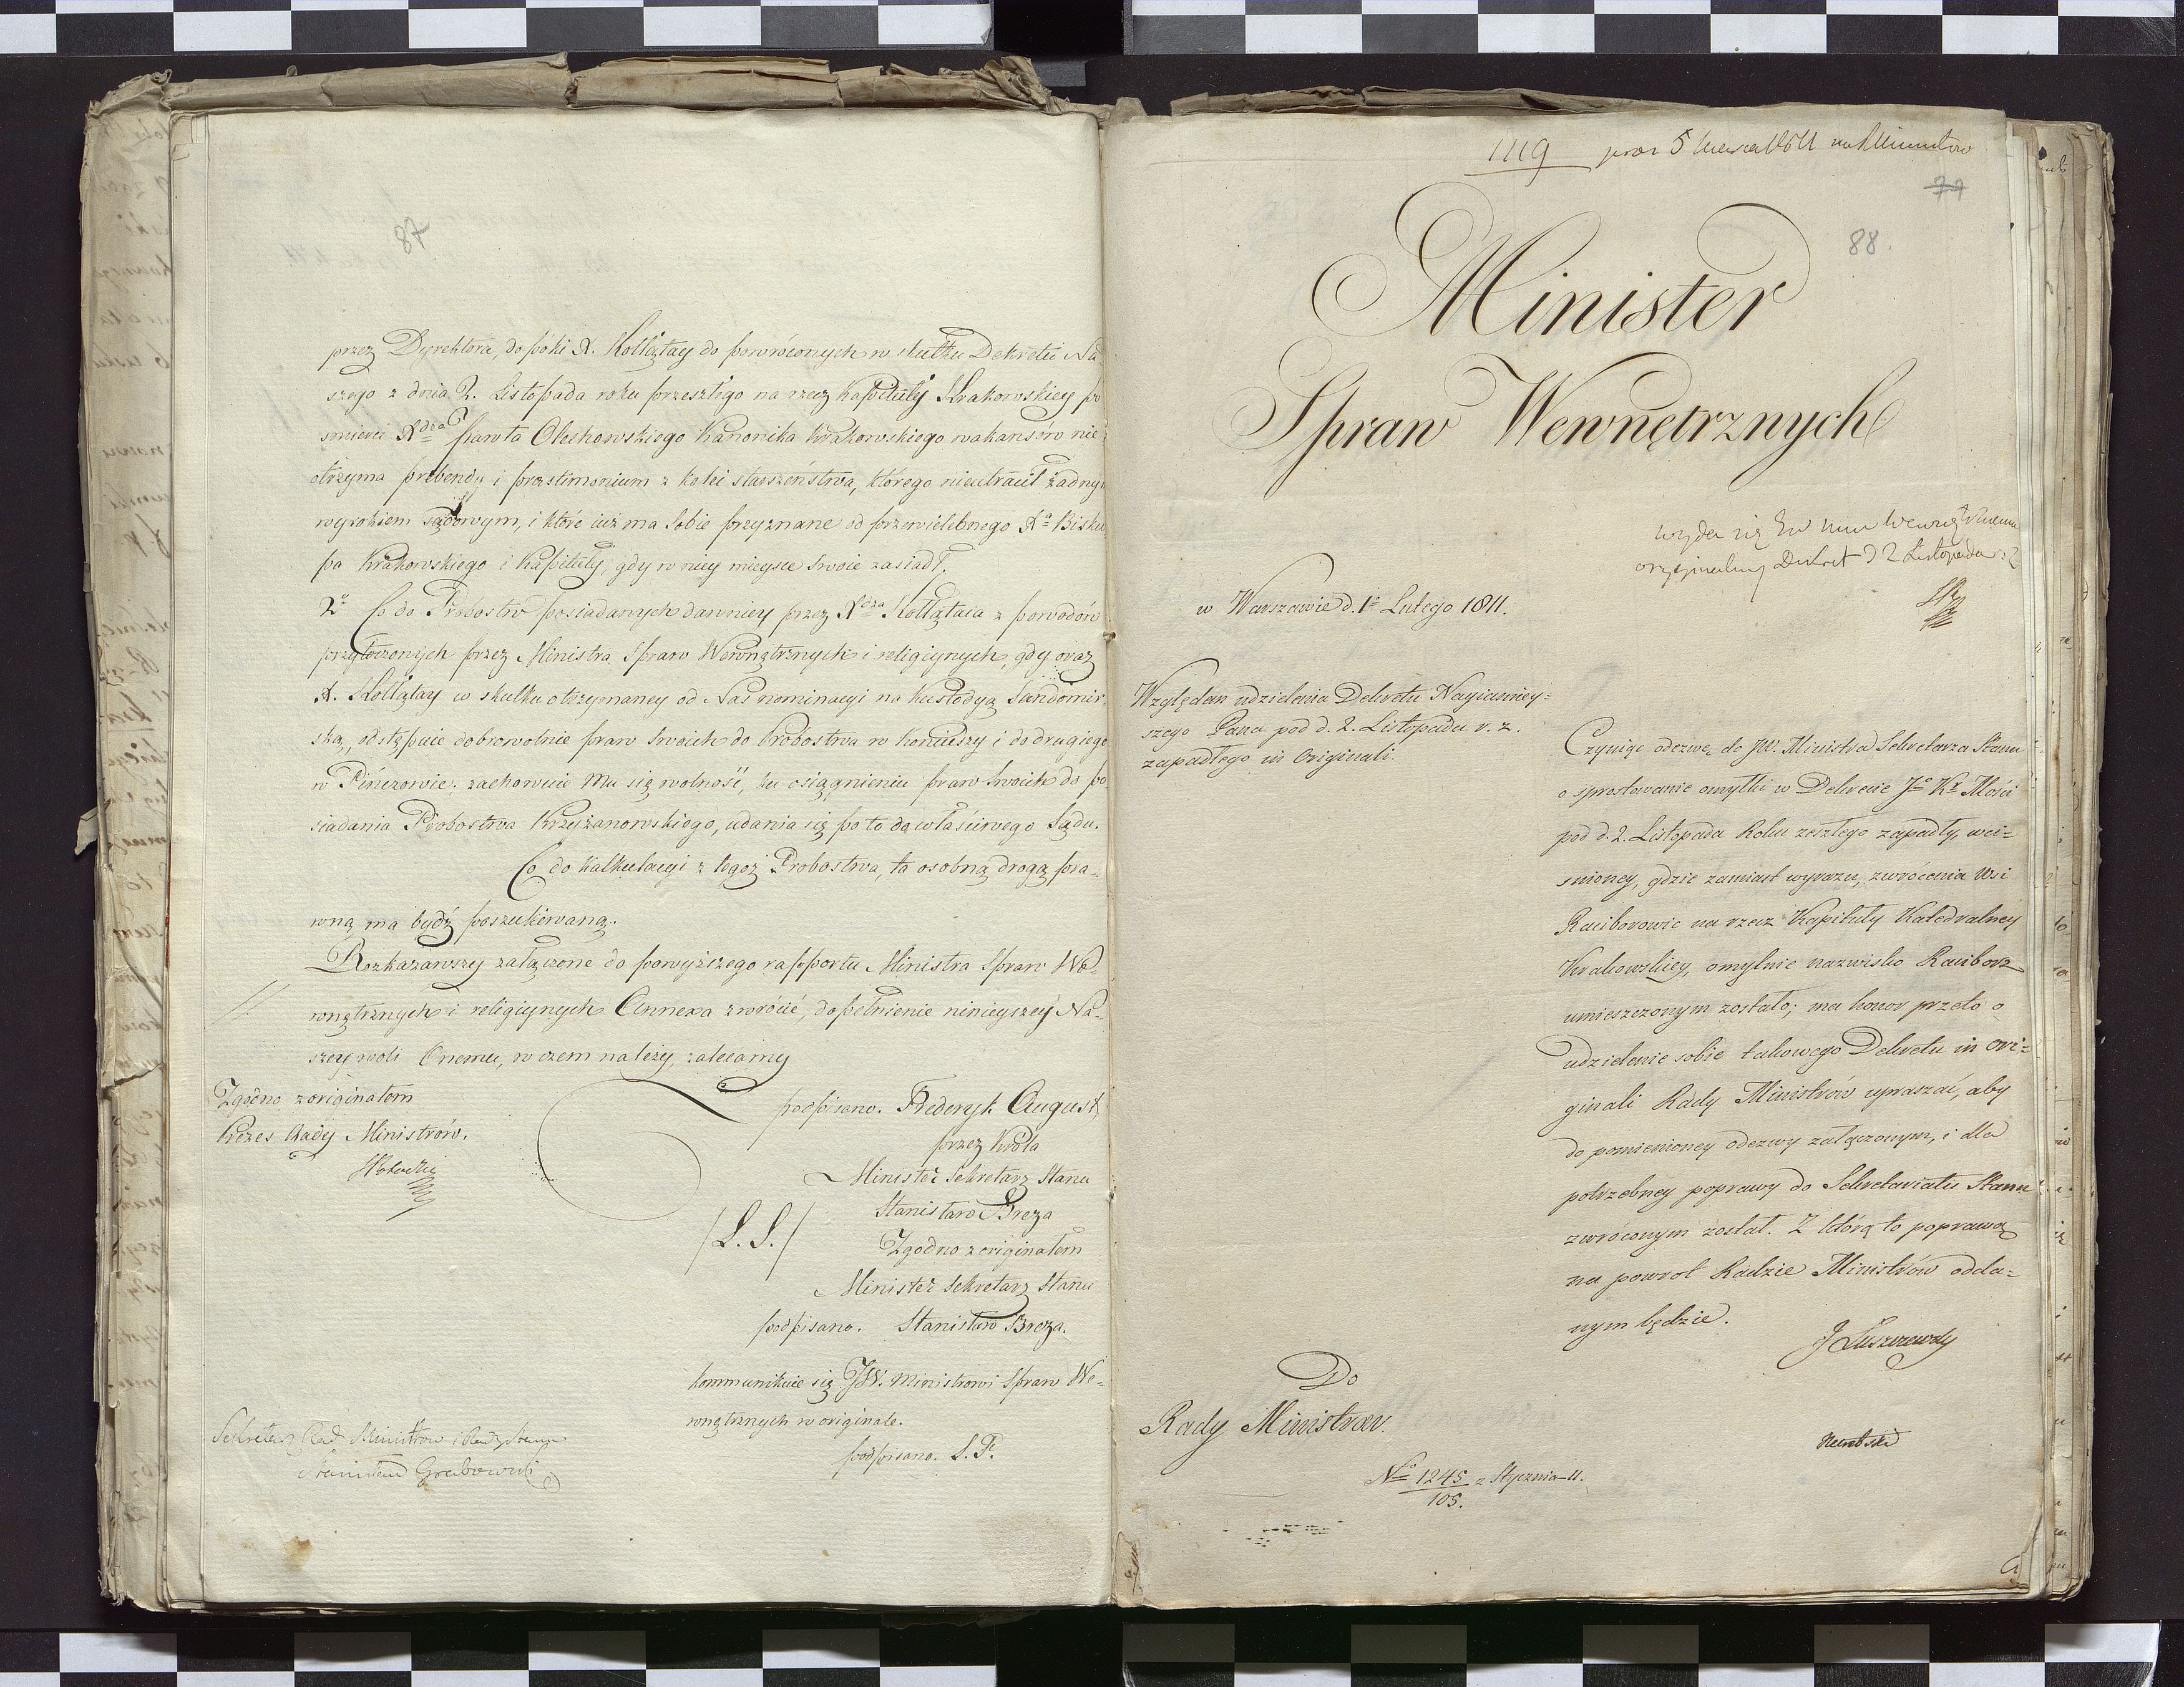 87
przez Dyrektora, dopóki X. Kołłątay do powróconych w skutku Dekretu Na
szego z dnia 2. Listopada roku przeszłego na rzecz Kapituły Krakowskiey po
śmierci Xdza Pawła Olechowskiego Kanonika Krakowskiego wakansów nie
otrzyma prebendy i praestimonium z kolei starszeństwa, którego nieutracił żadnym
wyrokiem sądowym, i które iuż ma sobie przyznane od przewielebnego Xa Bisku
pa Krakowskiego i Kapituły, gdy w niey mieysce swoie zasiadł.
2o Co do Probostw posiadanych dawniey przez Xdza Kołłątaia z powodów
przytoczonych przez Ministra Spraw Wewnętrznych i religiynych, gdy oraz
X. Kołłątay w skutku otrzymaney od Nas nominacyi na kustodyą Sandomir
ską, odstępuie dobrowolnie praw swoich do Probostwa w Koniuszy i do drugiego
w Pińczowie; zachowuie Mu się wolność, ku osiągnieniu praw swoich do po
siadania Probostwa Krzyżanowskiego, udania się po to do właściwego Sądu.
Co do kalkulacyi z tegoż Probostwa, ta osobną drogą pra-
wną ma bydź poszukiwaną.
Rozkazawszy załączone do powyższego rapportu Ministra Spraw We-
wnętrznych i religiynych Annexa zwrócić, dopełnienie ninieyszey Na-
szey woli Onemu, w czem należy, zalecamy
Zgodno z originałem
Prezes Rady Ministrów.
podpisano. Frederyk August
przez Króla
Minister Sekretarz Stanu
Stanisław Breza
/L. S./
Zgodno z originałem
Minister Sekretarz Stanu
podpisano. Stanisław Breza.
Kommunikuie się JW. Ministrowi Spraw We-
wnętrznych w originale.
podpisano. S. P.
Sekretarz Rad Ministrów i Rady Stanu
Stanisław Grabowski
1119
77
88.
Minister
Spraw Wewnętrznych
oryginalny Dekret d 2 Listopada
w Warszawie d. 1o Lutego 1811.
Względem udzielenia Dekretu Nayiaśniey=
szego Pana pod d. 2. Listopada r. z.
zapadłego in Originali.
Czyniąc odezwę do JW. Ministra Sekretarza Stanu
o sprostowanie omyłki w Dekrecie Jo Kr Mości
pod d. 2. Listopada Roku zeszłego zapadły, wci=
snioney, gdzie zamiast wyrazu, zwrócenia Wsi
Raciborowic na rzecz Kapituły Katedralney
Krakowskiey, omylnie nazwisko Raciborz
umieszczonym zostało; ma honor przeto o
udzielenie sobie takowego Dekretu in Ori=
ginali Rady Ministrów upraszać, aby
do pomienioney odezwy załączonym, i dla
potrzebney poprawy do Sekretariatu Stanu
zwróconym został. Z którą to poprawą
na powrót Radzie Ministrów odda=
nym będzie.
J Łuszczewsky
Do
Rady Ministrów.
No 1245/105. z Stycznia 11.